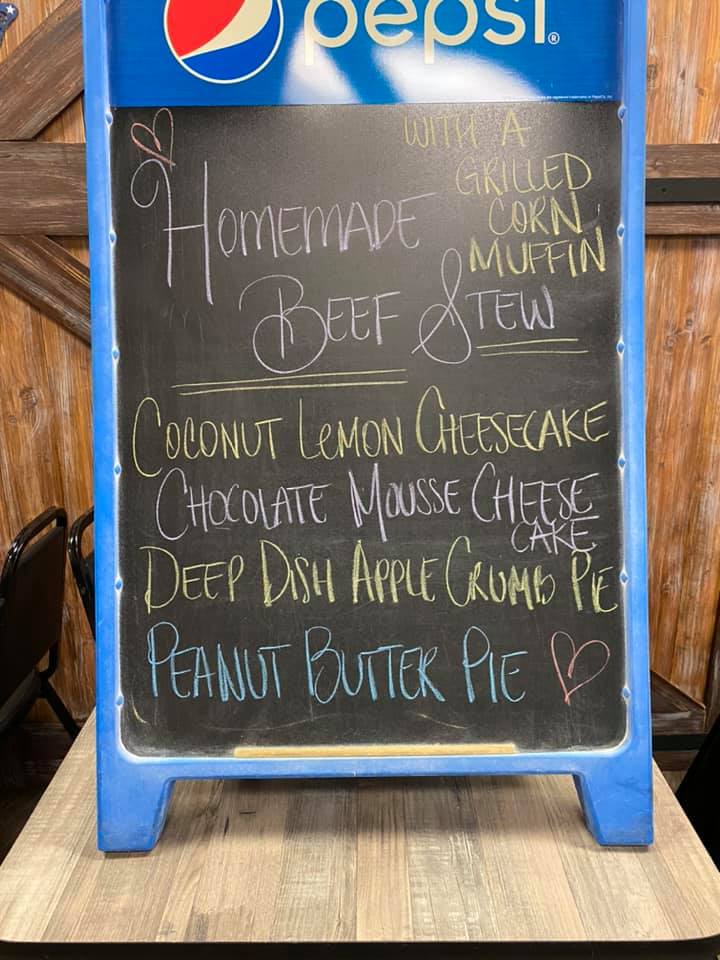 pepsi®
WITH A
GRILLED
CORN
MUFFIN
HOMEMADE
BEEF STEW
COCONUT LEMON CHEESECAKE
CHOCOLATE MOUSSE CHEESE
CAKE
DEEP DISH APPLE CRUMB PIE
PEANUT BUTTER PIE